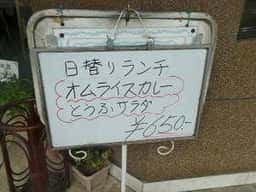 日替りランチ
オムライスカレー
とうふサラダ
¥650-